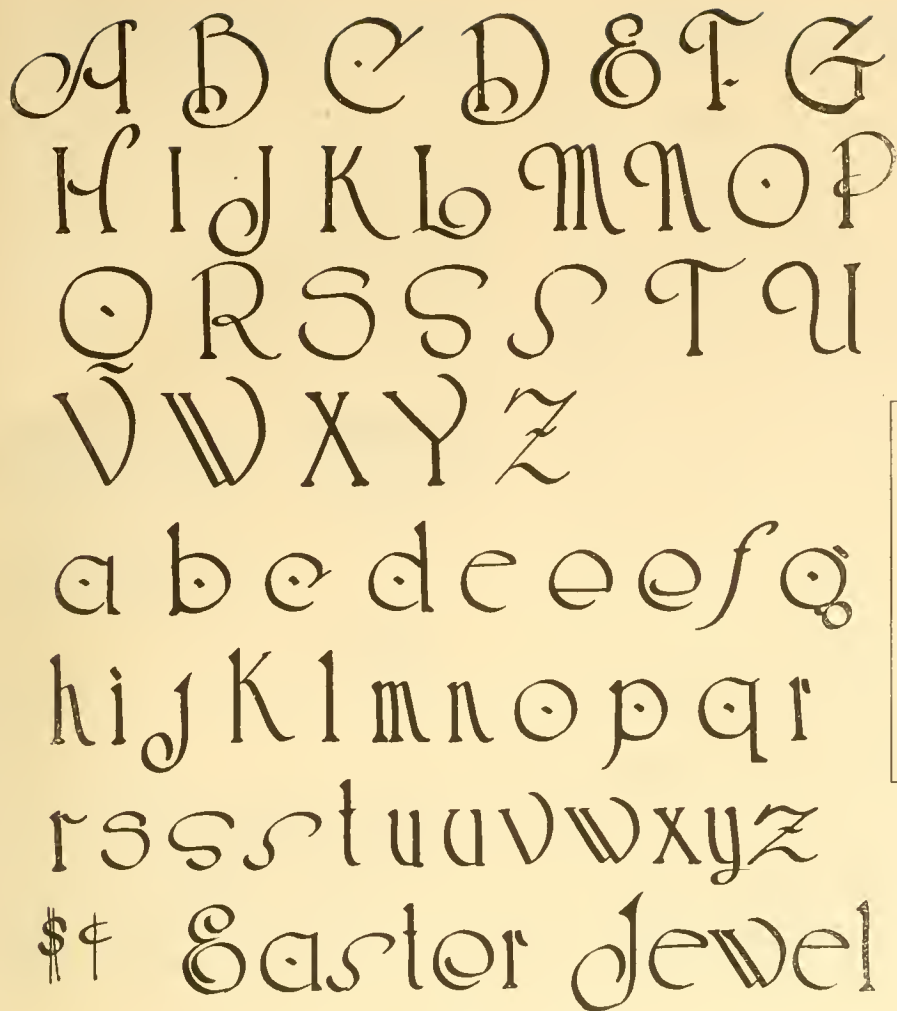 A B C D E F G
H I J K L M N O P
Q R S S S T U
V W X Y Z
a b c d e e e f g
h i j k l m n o p q r
r s s s t u u v w x y z
$ ¢ Easter Jewel